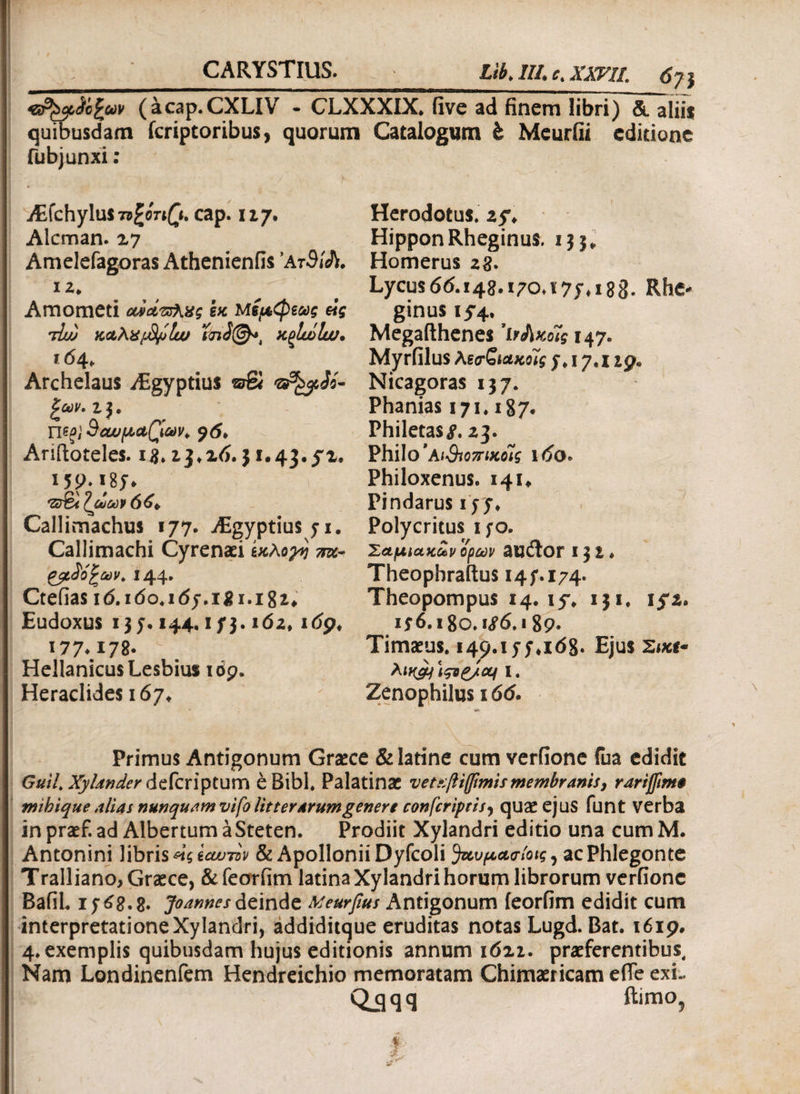 CARYSTIUS. Lib. III. c. XXVII. 673
παραδόξων (à cap. CXLIV - CLXXXIX. ſive ad finem libri) & aliis
quibusdam ſcriptoribus, quorum Catalogum è Meurſii editione
ſubjunxi:
Æſchylus τοξότιζι. cap. 127.
Alcman. 27
Ameleſagoras Athenienſis Ἀτθίδι.
12.
Amometi ἀνάπλους ἐκ Μέμφεως εἰς
τὴν καλουμένην ἰπίδος κρήνην.
164.
Archelaus Ægyptius περὶ παραδό-
ξων. 23.
Περὶ θαυμασίων. 96.
Ariſtoteles. 18. 23. 26. 31. 43. 52.
159. 185.
περὶ ζώων 66.
Callimachus 177. Ægyptius 51.
Callimachi Cyrenæi ἐκλογὴ πα-
ραδόξων. 144.
Cteſias 16. 160. 165. 181. 182.
Eudoxus 135. 144. 153. 162, 169.
177. 178.
Hellanicus Lesbius 169.
Heraclides 167.
Herodotus. 25.
Hippon Rheginus. 133.
Homerus 28.
Lycus 66. 148. 170. 175. 188. Rhe-
ginus 154.
Megaſthenes Ἰνδικοῖς 147.
Myrſilus λεσβιακοῖς 5. 17. 129.
Nicagoras 137.
Phanias 171. 187.
Philetas 8. 23.
Philo Αἰθιοπικοῖς 160.
Philoxenus. 141.
Pindarus 155.
Polycritus 150.
Σαμιακῶν ὅρων auctor 132.
Theophraſtus 145. 174.
Theopompus 14. 15. 131. 152.
156. 180. 186. 189.
Timæus. 149. 155. 168. Ejus Σικε-
λικαὶ ἱστορίαι 1.
Zenophilus 166.
Primus Antigonum Græce & latine cum verſione ſua edidit
Guil. Xylander deſcriptum è Bibl. Palatinæ vetuſtiſſimis membranis, rariſſimo
mihique alias nunquam viſo litterarum genere conſcriptis, quæ ejus ſunt verba
in præf. ad Albertum à Steten. Prodiit Xylandri editio una cum M.
Antonini libris εἰς ἑαυτὸν & Apollonii Dyſcoli θαυμασίοις, ac Phlegonte
Tralliano, Græce, & ſeorſim latina Xylandri horum librorum verſione
Baſil. 1568. 8. Joannes deinde Meurſius Antigonum ſeorſim edidit cum
interpretatione Xylandri, addiditque eruditas notas Lugd. Bat. 1619.
4. exemplis quibusdam hujus editionis annum 1622. præferentibus.
Nam Londinenſem Hendreichio memoratam Chimæricam eſſe exi-
Qqqq ſtimo,